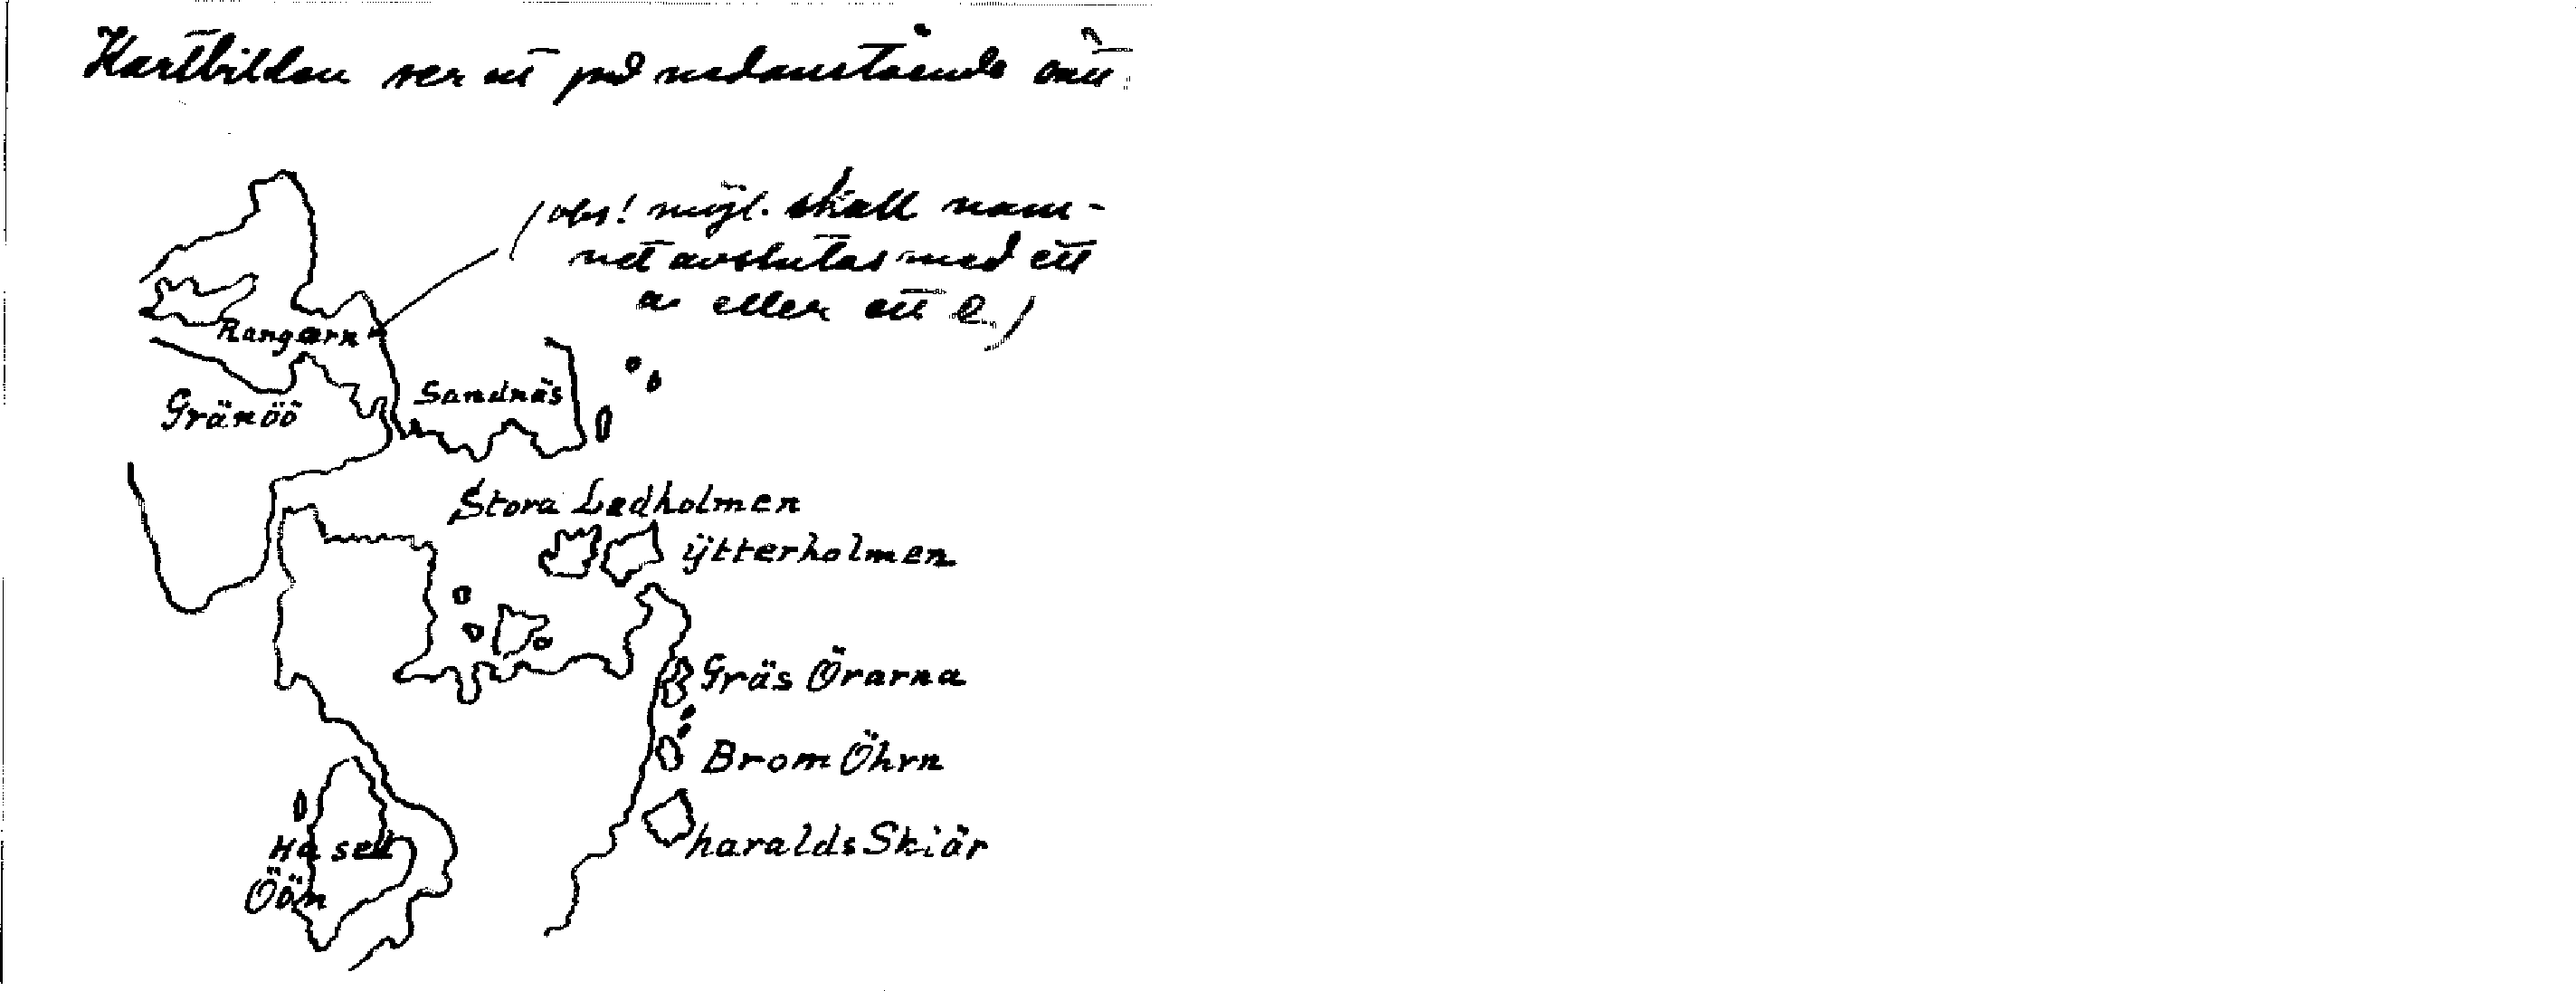 Kartbilden ser ut på nedanstående sätt:
(obs! möjl. skall nam-
net avslutas med ett
a eller ett e.)
Rangarn
Sandnäs
Gränöö
Stora Ladholmen
ÿtterholmen
Gräs Örarna
Brom Öhrn
haralds Skiär
Hasell
Öön